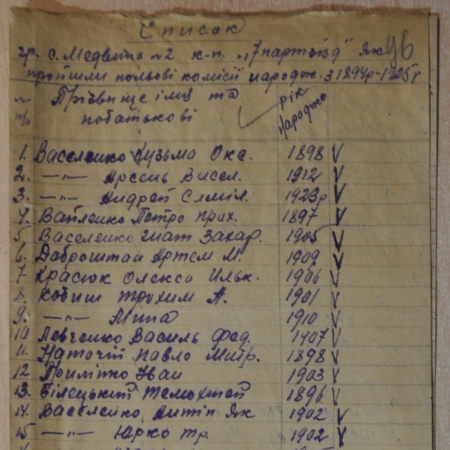 Список
гр. с. Медвино №2 к-п. "17 партзїзд" Як
96
пройшли польові комісії народж. з 1894р-1925р
№ Прізвище імя та рік
п/п побатькові народж
1. Василенко Кузьма Оке. 1898 V
2. —"— Арсень Васел. 1912 V
3. —"— Андрей 1923р V
4. Петро 1897 V
5 Василенко Гнат Захар. 1905 V
6. Даброштан Артем М. 1909 V
7 Красюк Олекса Ільк. 1906 V
8. Кобиш Трохим А. 1901 V
9. —"— Мина 1910 V
10 Левченко Василь Фед. 1907 V
11. Наточій Павло Митр. 1898 V
12 Іван 1903 V
13. Білецький 1896 V
14. Василенко Антін Як 1902 V
15 —"— Юрко Тр. 1902 V